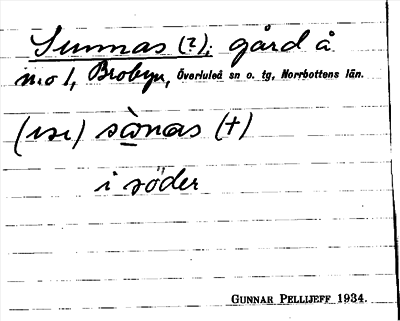 Sunnas (?), gård å
n:o 1, Brobyn, Överluleå sn o. tg, Norrbottens län.
(ɪsɪ) sànas (+)
i söder
GUNNAR PELLIJEFF 1934.